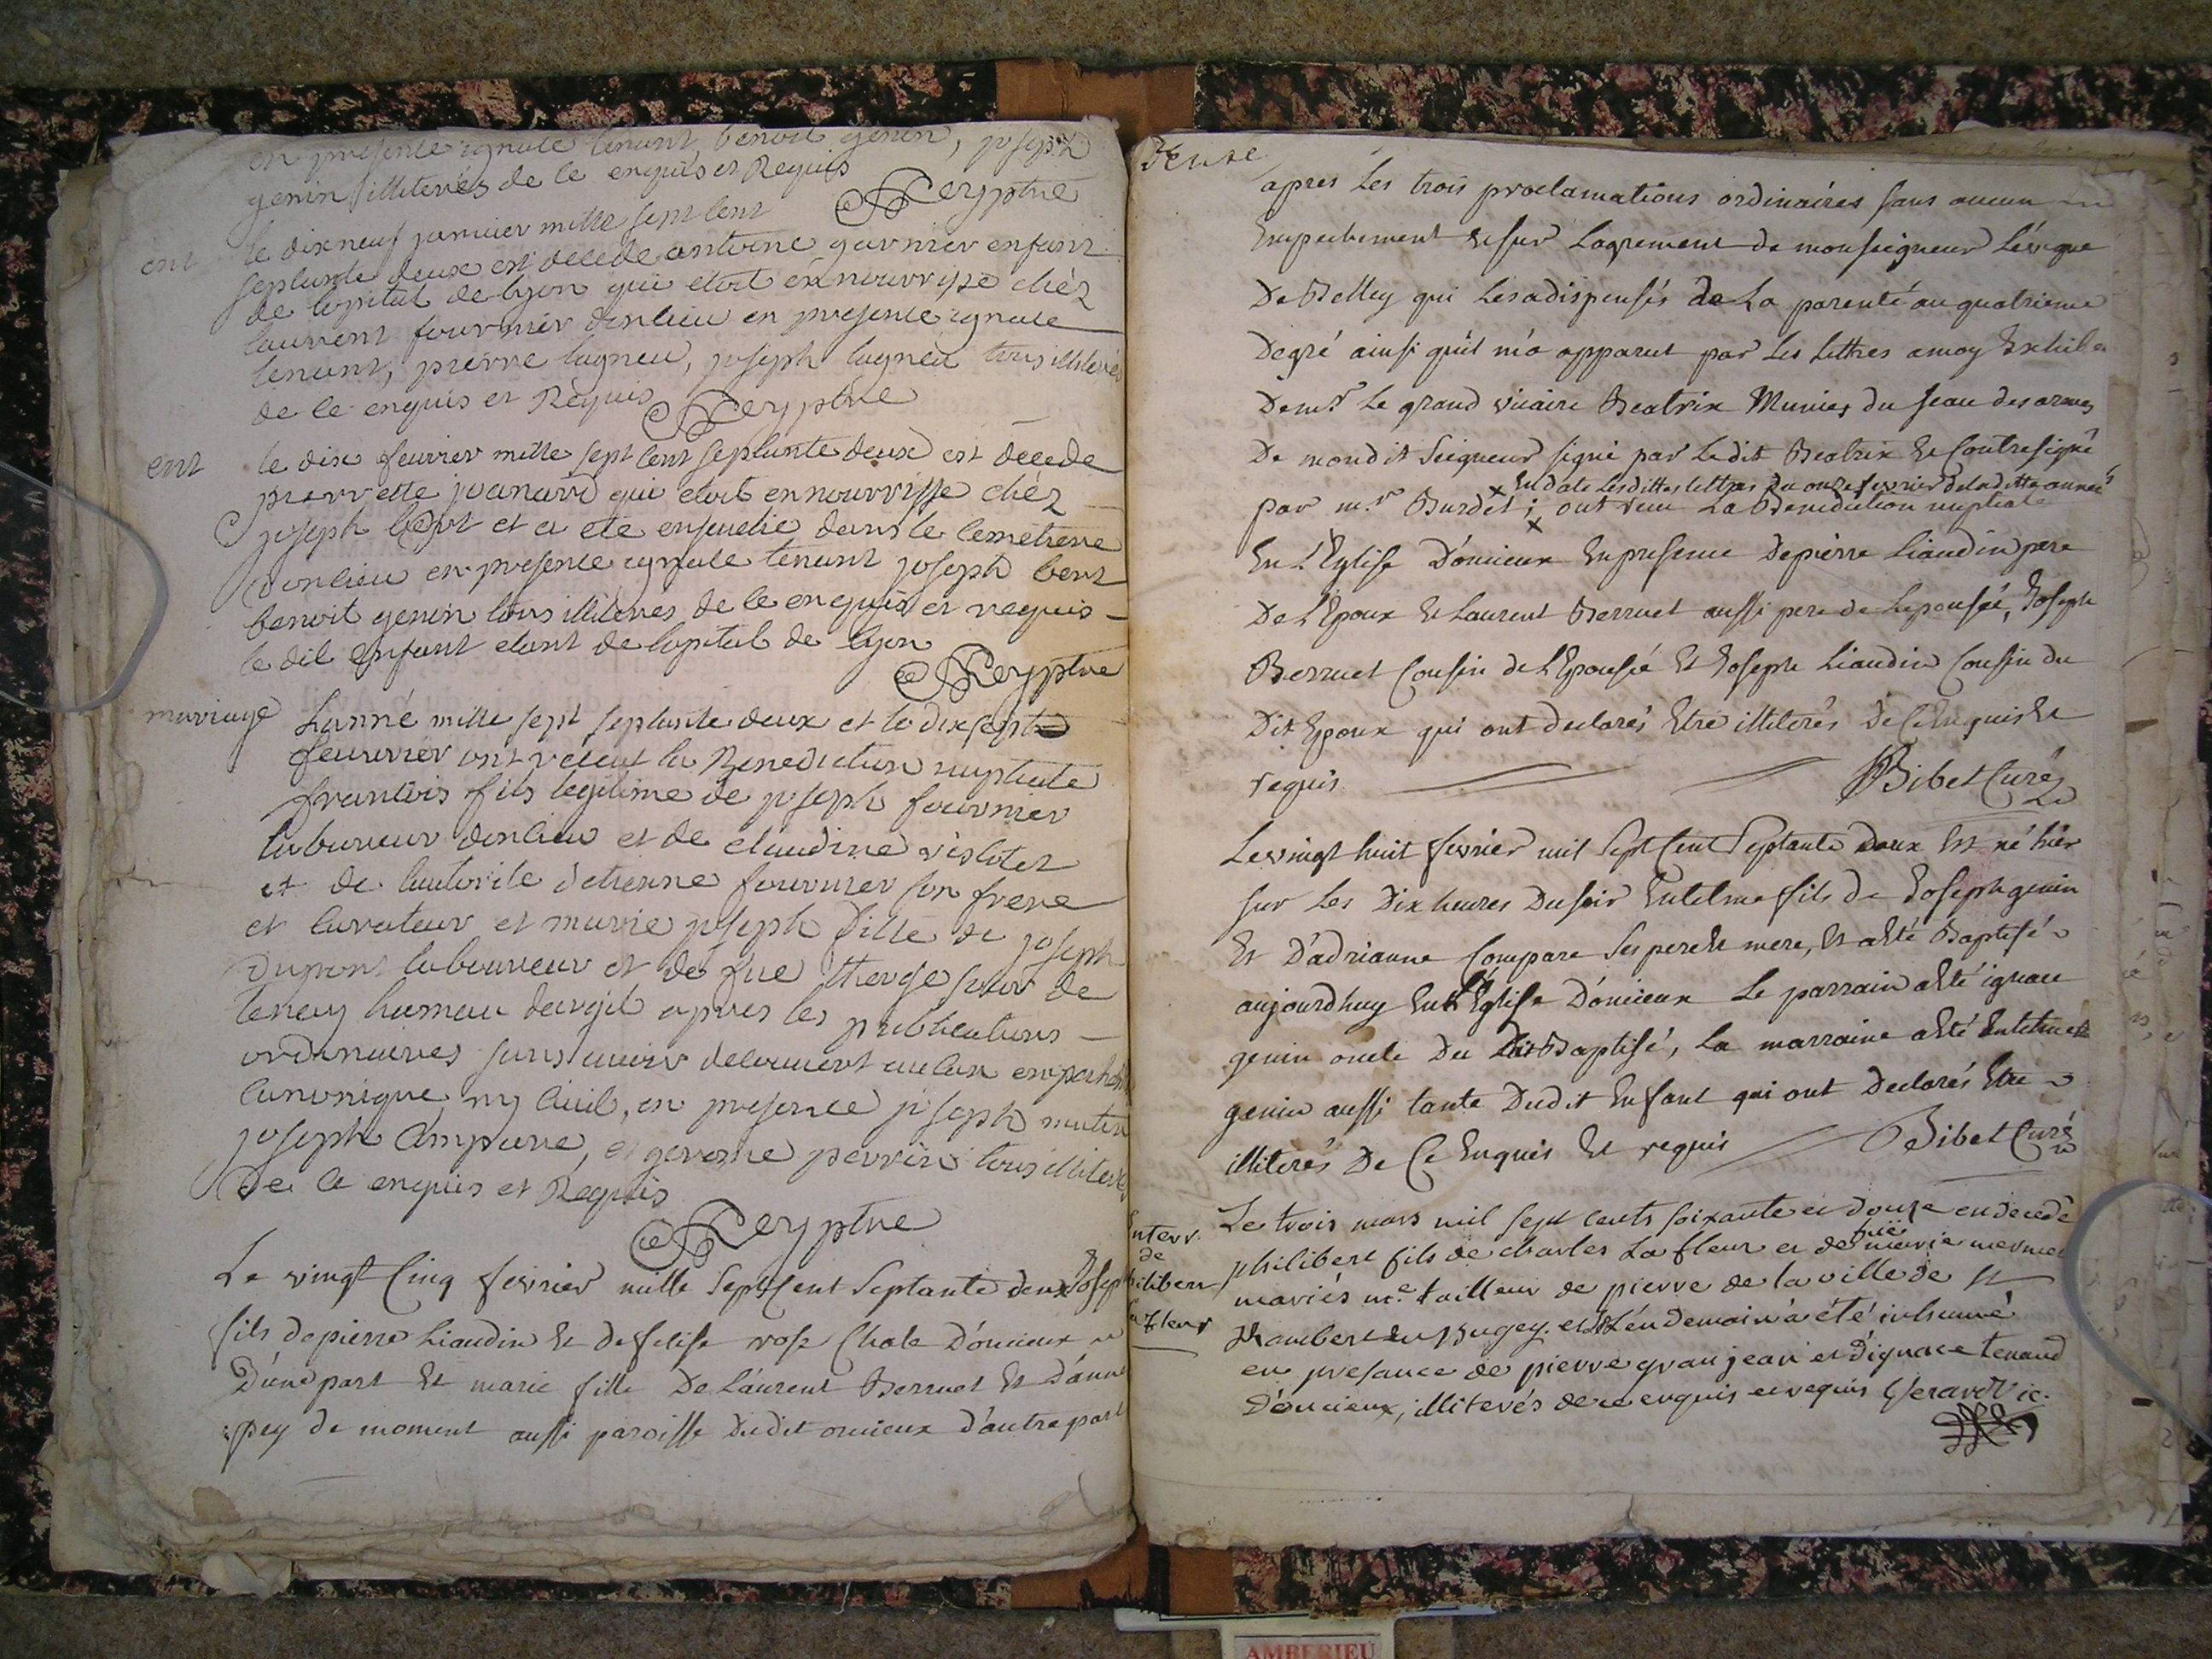 en presence ignace tenant, benoit genin, joseph
genin illiterés de ce enquis et Requis
Reyptre
ent
le dixneuf janvier mille sept cent
septante deux est décédé antoine garnier enfant
de lopital de lyon qui etoit en nourrisse chéz
laurent fournier donlieu en presence ignace
tenant, pierre lagneu, joseph lagneu tous illiterés
de ce enquis et Requis
Reyptre
ent
le dix feuvrier mille sept cent septante deux est décédé
pierrette joanard qui etoit en nourrisse chéz
joseph bert et a eté ensevelie dans le cemetierre
donlieu en presence ignace tenant joseph bert
benoit genin tous illiteres de ce enquis et requis
le dit enfant etant de lopital de lyon
Reyptre
mariage
Lanné mille sept septante deux et le dixsept
feuvrier ont receut la Benediction nuptiale
francois fils legitime de joseph fournier
laboureur donlieu et de claudine
et de lautorite detienne fournier son frere
et curateur et marie joseph fille de joseph
Dupont laboureur et de fue
tenay hameau apres les publications
ordinaires sans avoir decouvert aucun
canonique ny civil, en presence joseph
joseph Compare, et gerosme perrin tous illiterés
De ce enquis et Requis
Reyptre
Le vingt Cinq fevrier mille Sept Cent Septante deux Joseph
fils de pierre Liaudin et de felise rose Chole D'oncieux
D'une part Et marie fille De Laurent Berruet Et D'anne
pey de moment aussi paroisse Dudit oncieux d'autre part
deuxe
apres Les trois proclamations ordinaires sans aucun
Empechement et sur L'agrement de monseigneur L'évèque
De Belley qui Les a dispensés de La parenté au quatrieme
Degré ainsi qu'il m'a apparut par Les Lettres a moy Exhibé
De mr Le grand vicaire Beatrix Munies du seau des armes
De mondit Seigneur signé par Ledit Beatrix Et Contresigné
x En date Lesdittes lettres Du onze fevrier de laditte année
par mr Burdet; x ont recu La Benediction nuptiale
En L'Eglise D'oncieux En presence De pierre Liaudin pere
De L'Epoux Et Laurent Berruet aussi pere de L'epousée, Joseph
Berruet Cousin de L'Epousée Et Joseph Liaudin Cousin du
Dit Epoux qui ont declarés Etre illiterés De Ce Enquis Et
requis
Bibet Curé
Le vingt huit fevrier mil Sept Cent Septante Deux Est né hier
sur Les Dix heures Du soir Entelme fils de Joseph genin
Et D'adrianne Compare Ses pere Et mere, Et a Eté Baptisé
aujourdhuy En L'Eglise D'oncieux Le parrain a Eté ignace
genin oncle Du Dit Baptisé, La marraine a Eté Entelmette
genin aussi tante Dudit Enfant qui ont Declarés Etre
illiterés De Ce Enquis Et requis Bibet Curé
Enterr.
de
philibert
la fleur
Le trois mars mil sept cents soixante et douze en decedé
philibert fils de charles La fleur et de fuë marie mermet
mariés me tailleur de pierre de la ville de St
Rambert en Bugey. et Le Lendemain a été inhumé
en presance de pierre granjean et D'ignace tenand
D'oncieux, illiterés de ce enquis et requis Gerard vic.
AMBERIEU